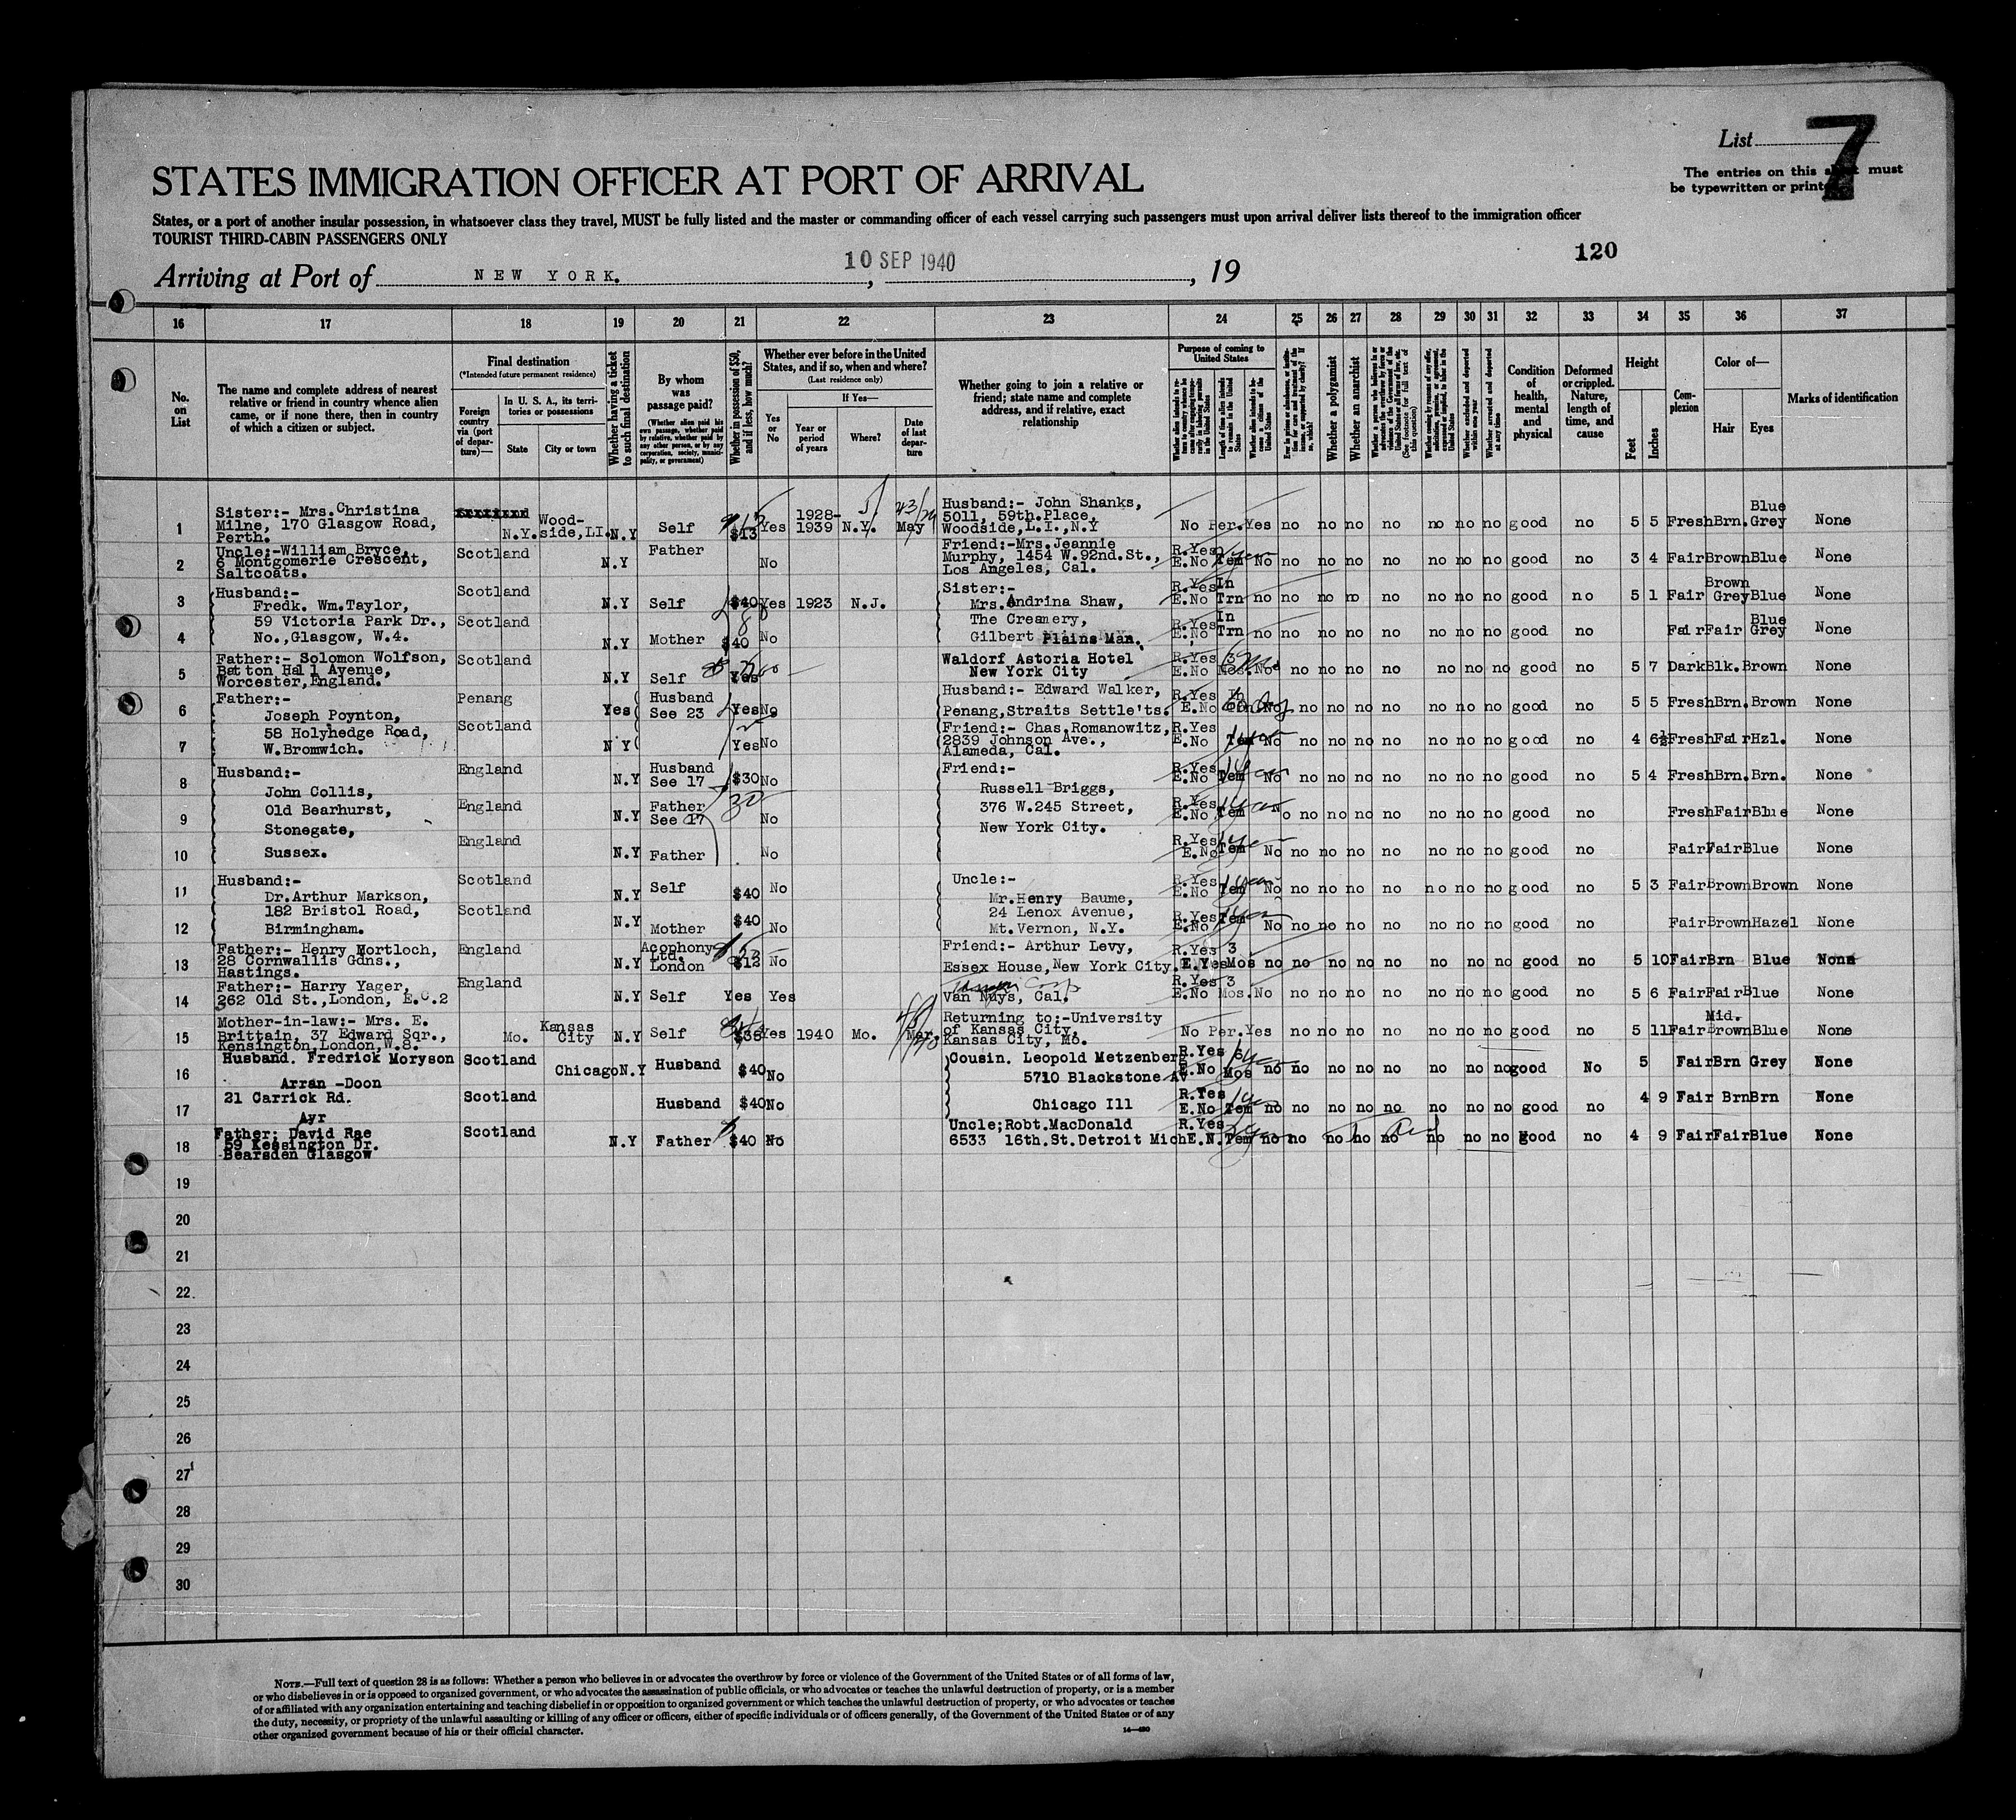 List 7
The entries on this sheet must
be typewritten or printed
STATES IMMIGRATION OFFICER AT PORT OF ARRIVAL
States, or a port of another insular possession, in whatsoever class they travel, MUST be fully listed and the master or commanding officer of each vessel carrying such passengers must upon arrival deliver lists thereof to the immigration officer
TOURIST THIRD-CABIN PASSENGERS ONLY
120
Arriving at Port of NEW YORK. 10 SEP 1940, 19
16 17 18 19 20 21 22 23 24 25 26 27 28 29 30 31 32 33 34 35 36 37
No. on List
The name and complete address of nearest
relative or friend in country whence alien
came, or if none there, then in country
of which a citizen or subject.
Final destination
(*Intended future permanent residence)
Foreign country via (port of departure)—
In U. S. A., its territories or possessions
State
City or town
Whether having a ticket to such final destination
By whom was passage paid?
(Whether alien paid his own passage, whether paid by relative, whether paid by any other person, or by any corporation, society, municipality, or government)
Whether in possession of $50, and if less, how much?
Whether ever before in the United States, and if so, when and where?
(Last residence only)
Yes or No
If Yes—
Year or period of years
Where?
Date of last departure
Whether going to join a relative or
friend; state name and complete
address, and if relative, exact
relationship
Purpose of coming to United States
Length of time alien intends to remain in the United States
Whether alien intends to become a citizen of the United States
Whether a polygamist
Whether an anarchist
(See footnote for full text of this question)
Whether excluded and deported within one year
Whether arrested and deported at any time
Condition of health, mental and physical
Deformed or crippled. Nature, length of time, and cause
Height
Feet
Inches
Complexion
Color of—
Hair
Eyes
Marks of identification
1 Sister:- Mrs. Christina Milne, 170 Glasgow Road, Perth. N.Y. Woodside,LI. N.Y Self $13 Yes 1928-1939 N.Y. May Husband:- John Shanks, 5011, 59th.Place, Woodside,L.I.,N.Y No Per. Yes no no no no no no no good no 5 5 Fresh Brn. Blue Grey None
2 Uncle:-William Bryce, 6 Montgomerie Crescent, Saltcoats. Scotland N.Y Father No Friend:-Mrs.Jeannie Murphy, 1454 W.92nd.St., Los Angeles, Cal. R.Yes E.No Tem No no no no no no no no good no 3 4 Fair Brown Blue None
3 Husband:- Fredk. Wm.Taylor, Scotland N.Y Self $40 Yes 1923 N.J. Sister:- Mrs.Andrina Shaw, R.Yes E.No In Trn no no no no no no no no good no 5 1 Fair Brown Grey Blue None
4 59 Victoria Park Dr., No.,Glasgow, W.4. Scotland N.Y Mother $40 No The Creamery, Gilbert Plains Man. R.Yes E.No In Trn no no no no no no no no good no Fair Fair Blue Grey None
5 Father:- Solomon Wolfson, Batton Hall Avenue, Worcester,England. Scotland N.Y Self Yes Waldorf Astoria Hotel New York City R.Yes E.No 3 Mos. No no no no no no no no good no 5 7 Dark Blk. Brown None
6 Father:- Joseph Poynton, Penang Yes Husband See 23 Yes No Husband:- Edward Walker, Penang,Straits Settle'ts. R.Yes E.No In no no no no no no no good no 5 5 Fresh Brn. Brown None
7 58 Holyhedge Road, W.Bromwich. Scotland N Y Yes No Friend:- Chas.Romanowitz, 2839 Johnson Ave., Alameda, Cal. R.Yes E.No Tem No no no no no no no no good no 4 6½ Fresh Fair Hzl. None
8 Husband:- John Collis, England N.Y Husband See 17 $30 No Friend:- Russell Briggs, R.Yes E.No Tem No no no no no no no no good no 5 4 Fresh Brn. Brn. None
9 Old Bearhurst, Stonegate, England N.Y Father See 17 No 376 W.245 Street, New York City. R.Yes E.No Tem No no no no no no no no good no Fresh Fair Blue None
10 Sussex. England N.Y Father No R.Yes E.No Tem No no no no no no no no good no Fair Fair Blue None
11 Husband:- Dr.Arthur Markson, Scotland N.Y Self $40 No Uncle:- Mr.Henry Baume, R.Yes E.No Tem No no no no no no no no good no 5 3 Fair Brown Brown None
12 182 Bristol Road, Birmingham. Scotland N.Y Mother $40 No 24 Lenox Avenue, Mt.Vernon, N.Y. R.Yes E.No Tem No no no no no no no no good no Fair Brown Hazel None
13 Father:- Henry Mortloch, 28 Cornwallis Gdns., Hastings. England N.Y Acophony Ltd. London $12 No Friend:- Arthur Levy, Essex House,New York City. R.Yes E.Yes 3 Mos no no no no no no no no good no 5 10 Fair Brn Blue None
14 Father:- Harry Yager, 262 Old St.,London, E.C.2 England N.Y Self Yes Yes Van Nuys, Cal. R.Yes E.No 3 Mos. No no no no no no no no good no 5 6 Fair Fair Blue None
15 Mother-in-law:- Mrs. E. Brittain, 37 Edward Sqr., Kensington,London,W.8. Mo. Kansas City N.Y Self $35 Yes 1940 Mo. Mar. Returning to:-University of Kansas City, Kansas City, Mo. No Per. Yes no no no no no no no good no 5 11 Fair Mid. Brown Blue None
16 Husband. Fredrick Moryson Scotland Chicago N.Y Husband $40 No Cousin. Leopold Metzenberg 5710 Blackstone Av R.Yes E.No 6 Mos no no no no no no no no good No 5 Fair Brn Grey None
17 Arran -Doon 21 Carrick Rd. Ayr Scotland Husband $40 No Chicago Ill R.Yes E.No Tem no no no no no no no no good no 4 9 Fair Brn Brn None
18 Father; David Rae 59 Kessington Dr. Bearsden Glasgow Scotland N.Y Father $40 No Uncle;Robt.MacDonald 6533 16th.St.Detroit Mich R.Yes E.N. Tem no no no no no no no no good no 4 9 Fair Fair Blue None
19
20
21
22
23
24
25
26
27
28
29
30
NOTE.—Full text of question 28 is as follows: Whether a person who believes in or advocates the overthrow by force or violence of the Government of the United States or of all forms of law,
or who disbelieves in or is opposed to organized government, or who advocates the assassination of public officials, or who advocates or teaches the unlawful destruction of property, or is a member
of or affiliated with any organization entertaining and teaching disbelief in or opposition to organized government or which teaches the unlawful destruction of property, or who advocates or teaches
the duty, necessity, or propriety of the unlawful assaulting or killing of any officer or officers, either of specific individuals or of officers generally, of the Government of the United States or of any
other organized government because of his or their official character.